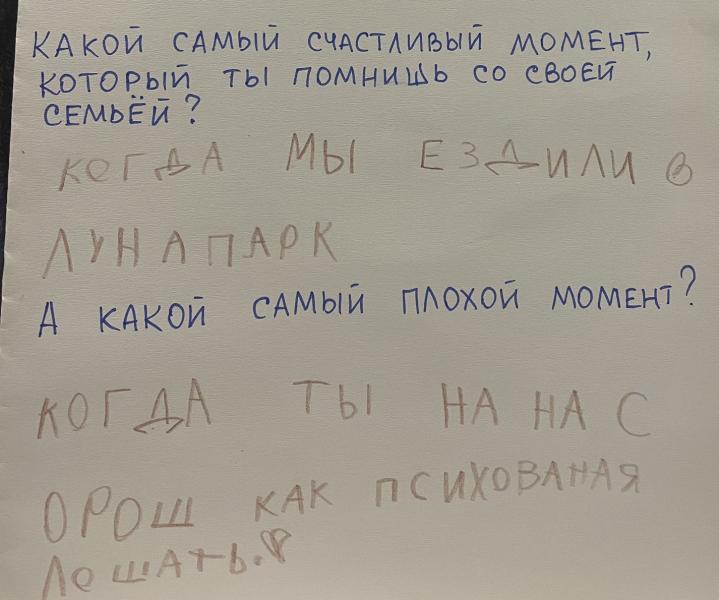 КАКОЙ САМЫЙ СЧАСТЛИВЫЙ МОМЕНТ,
КОТОРЫЙ ТЫ ПОМНИШЬ СО СВОЕЙ
СЕМЬЁЙ?
КОГДА МЫ ЕЗДИЛИ В
ЛУНАПАРК
А КАКОЙ САМЫЙ ПЛОХОЙ МОМЕНТ?
КОГДА ТЫ НА НА С
ОРОШ КАК ПСИХОВАНАЯ
ЛОШАТЬ.